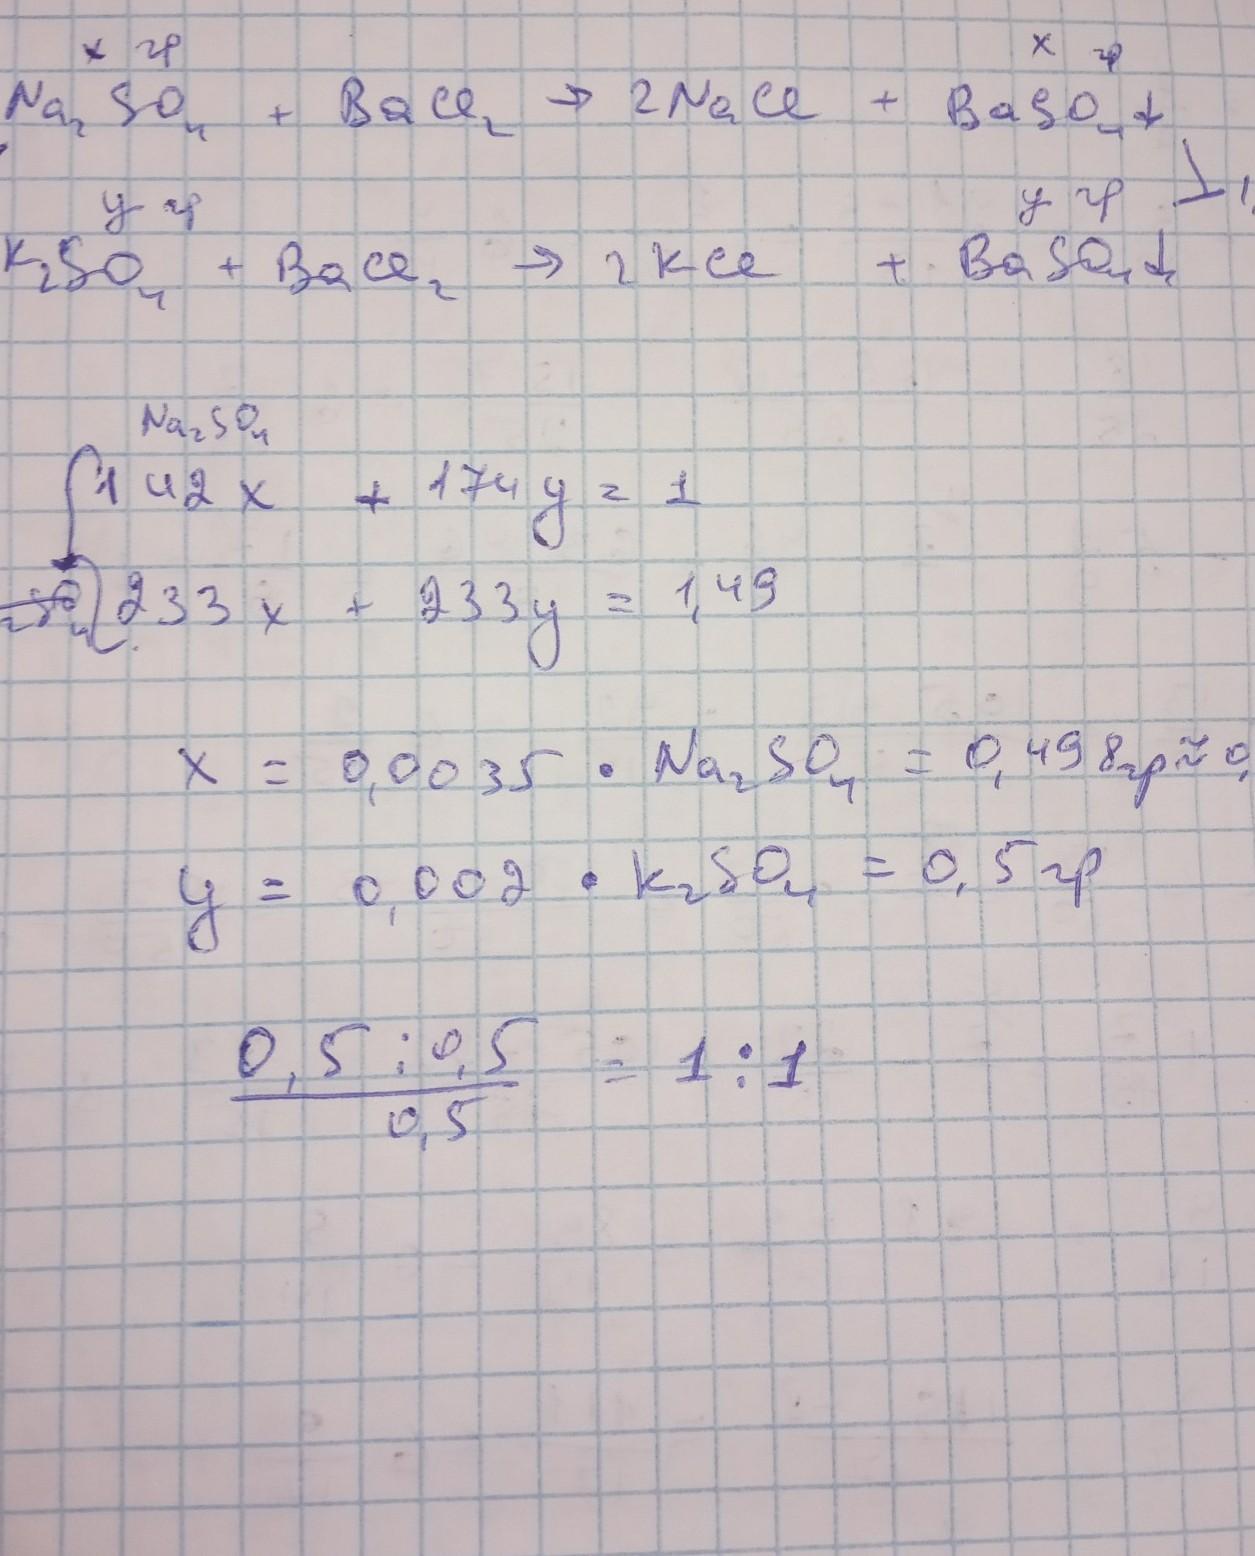 x гр x гр
Na₂SO₄ + BaCl₂ → 2NaCl + BaSO₄↓
y гр y гр
K₂SO₄ + BaCl₂ → 2KCl + BaSO₄↓
Na₂SO₄
142x + 174y = 1
233x + 233y = 1,49
x = 0,0035 · Na₂SO₄ = 0,498гр ≈ 0,
y = 0,002 · K₂SO₄ = 0,5гр
0,5 : 0,5 = 1 : 1
0,5